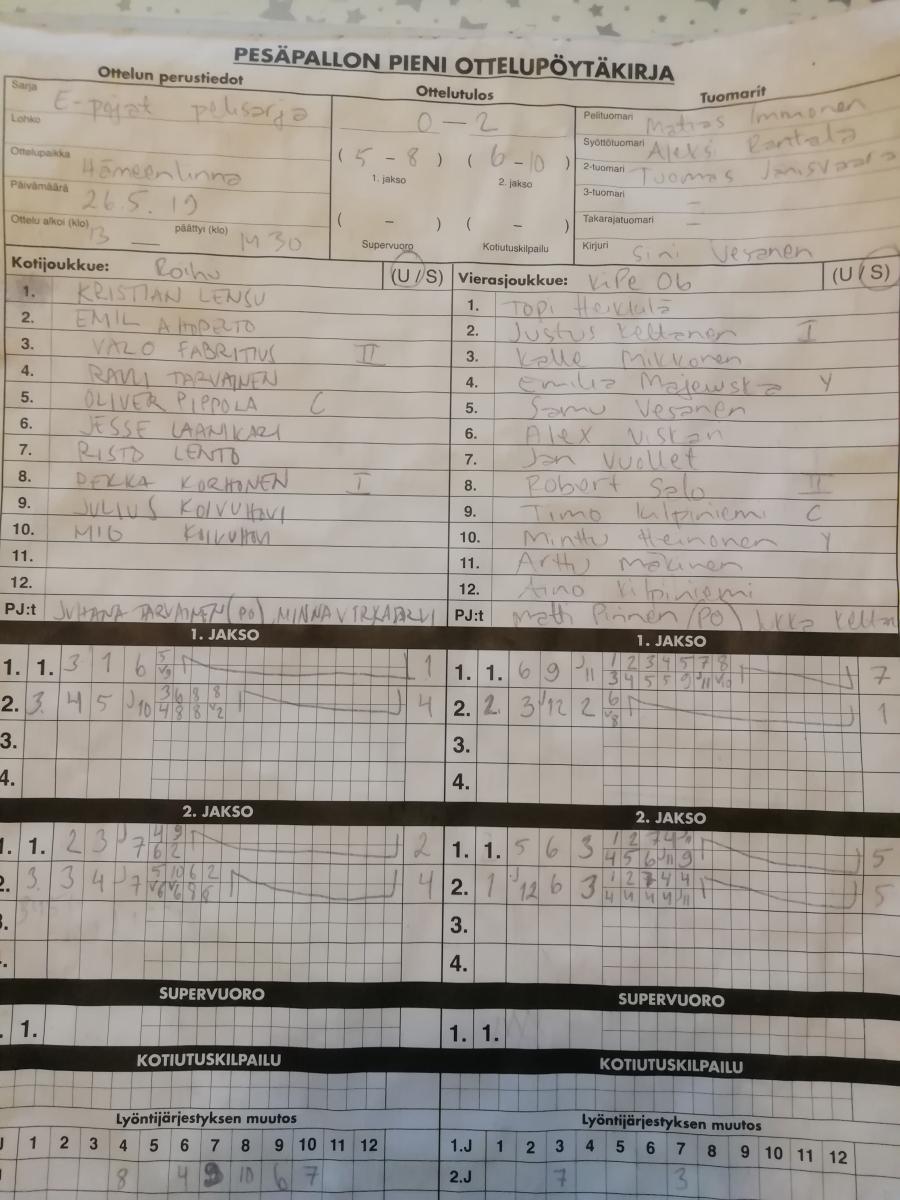 PESÄPALLON PIENI OTTELUPÖYTÄKIRJA
Ottelun perustiedot
Ottelutulos
Tuomarit
Sarja E-pojat pelisarja
Lohko
Ottelupaikka Hämeenlinna
Päivämäärä 26.5.19
Ottelu alkoi (klo) 13 päättyi (klo) 14 30
0 - 2
( 5 - 8 ) ( 6 - 10 )
1. jakso 2. jakso
( - ) ( - )
Supervuoro Kotiutuskilpailu
Pelituomari Matias Immonen
Syöttötuomari Aleksi Rantala
2-tuomari Tuomas
3-tuomari -
Takarajatuomari -
Kirjuri Sini Vesanen
Kotijoukkue: Roihu (U/S)
1. KRISTIAN LENSU
2. EMIL
3. VALO FABRITIUS II
4. RAVLI TARVAINEN
5. OLIVER PIPPOLA C
6. JESSE LAANIKARI
7. RISTO LENTO
8. PEKKA KORHONEN I
9. JULIUS KOIVUHOVI
10. MIO KOIVUHOVI
11.
12.
PJ:t JUHANA TARVAINEN (PO) MINNA
Vierasjoukkue: ViPe 06 (U/S)
1. Topi Heikkilä
2. Justus Keltanen I
3. Kalle Mikkonen
4. Emilia Majewska Y
5. Samu Vesanen
6. Alex
7. Jan Vuollet
8. Robert Salo II
9. Timo Kilpiniemi C
10. Minttu Heinonen Y
11. Arttu Mäkinen
12. Aino Kilpiniemi
PJ:t Matti Pirinen (PO) Jukka
1. JAKSO
1. 1. 3 1 6 5 1
V9
2. 3. 4 5 J10 3 6 8 8 4
4 8 8 V2
3.
4.
1. JAKSO
1. 1. 6 9 J11 1 2 3 4 5 7 8 7
3 4 5 5 9 J11 V10
2. 2. 3 J12 2 6 1
V8
3.
4.
2. JAKSO
1. 1. 2 3 J7 4 9 2
6 2
2. 3. 3 4 J7 5 10 6 2 4
V6 V6 8 8
2. JAKSO
1. 1. 5 6 3 1 2 7 4 J11 5
4 5 6 J11 9
2. 1 J12 6 3 1 2 7 4 4 5
4 4 4 4 J11
3.
4.
SUPERVUORO
1.
SUPERVUORO
1. 1.
KOTIUTUSKILPAILU
KOTIUTUSKILPAILU
Lyöntijärjestyksen muutos
1 2 3 4 5 6 7 8 9 10 11 12
8 4 9 10 6 7
Lyöntijärjestyksen muutos
1.J 1 2 3 4 5 6 7 8 9 10 11 12
2.J 7 3